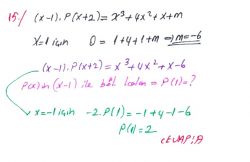 15/ (x-1).P(x+2) = x³+4x²+x+m
x=1 için 0 = 1+4+1+m ⇒ m=-6
(x-1).P(x+2) = x³+4x²+x-6
P(x) in (x-1) ile böl. kalan = P(1) = ?
x=-1 için -2.P(1) = -1+4-1-6
P(1) = 2
CEVAP: A